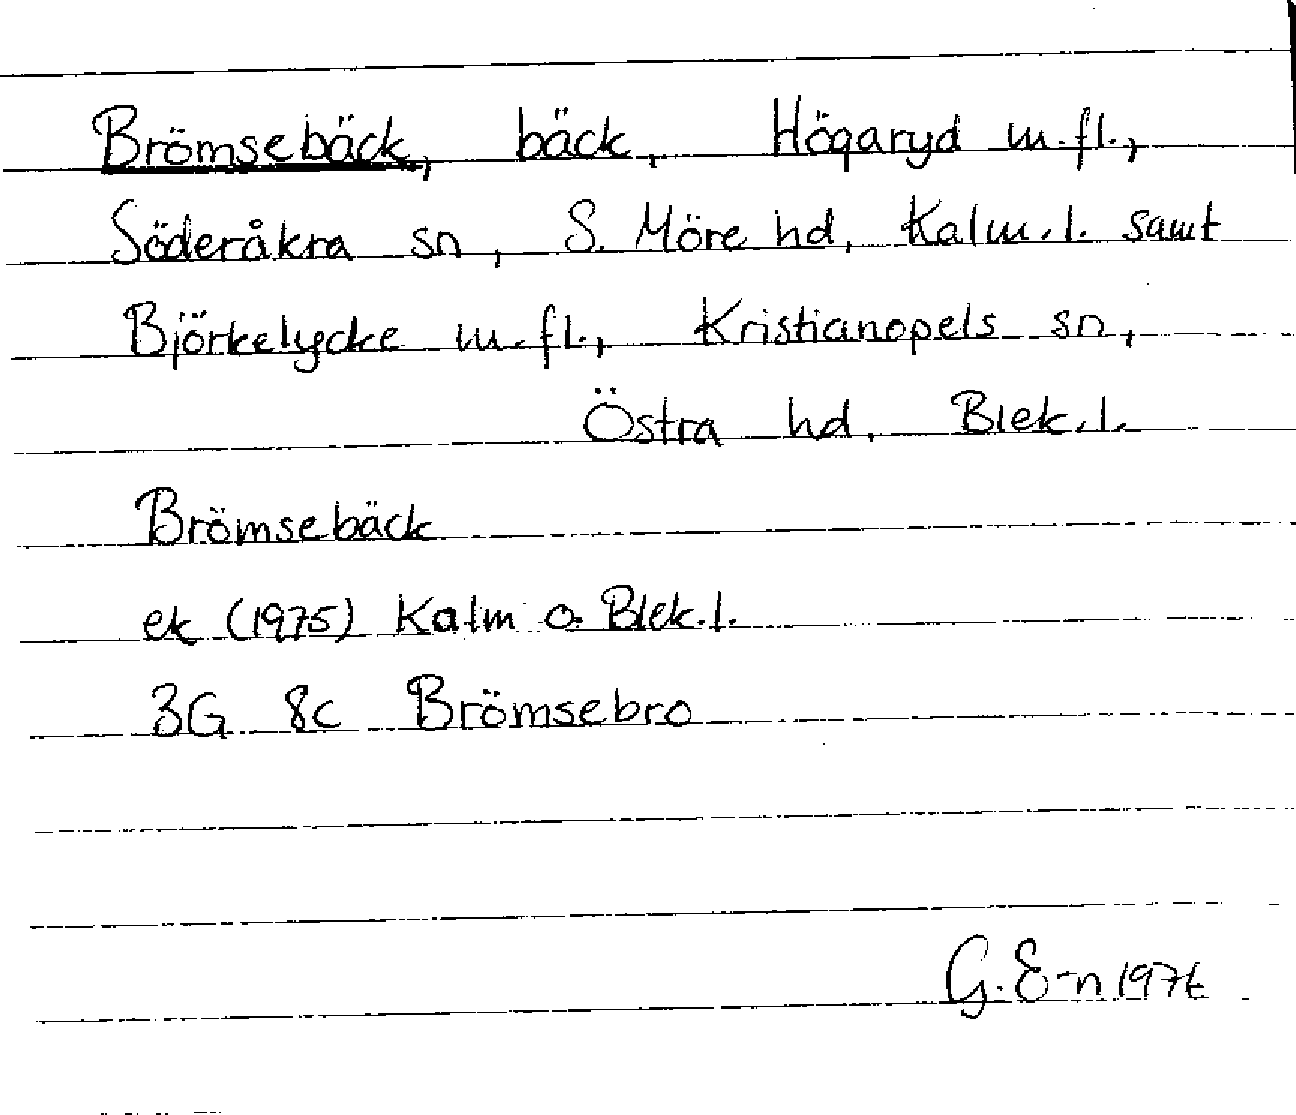 Brömsebäck, bäck, Högaryd m.fl.,
Söderåkra sn, S. Möre hd, Kalm.l. samt
Björkelycke m.fl., Kristianopels sn,
Östra hd, Blek.l.
Brömsebäck
ek (1975) Kalm o. Blek.l.
3G 8c Brömsebro
G. E-n 1976